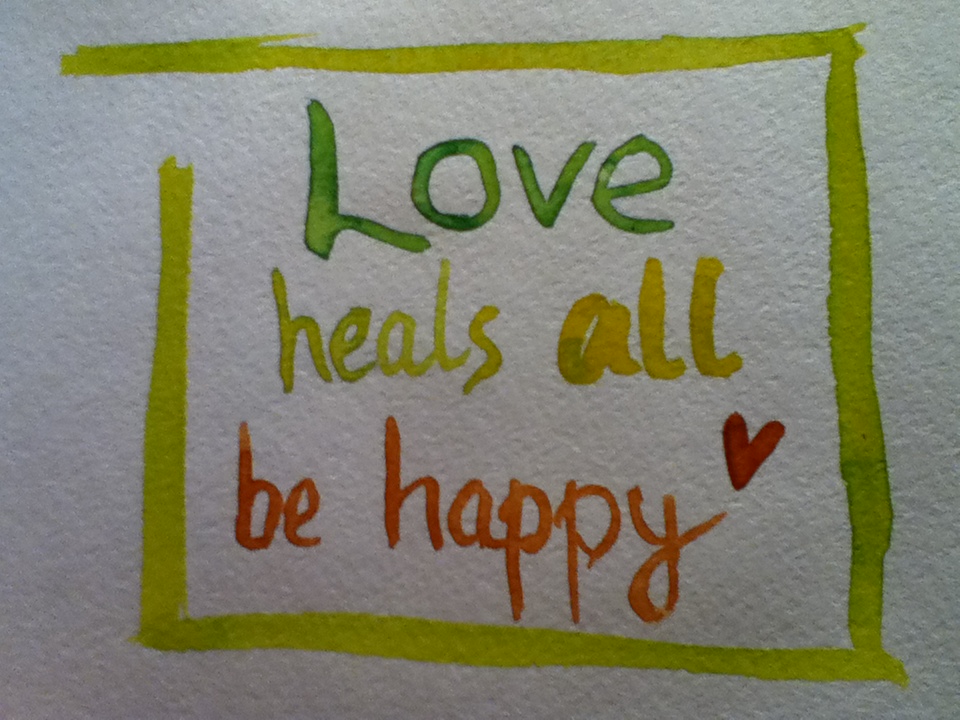 Love
heals all
be happy